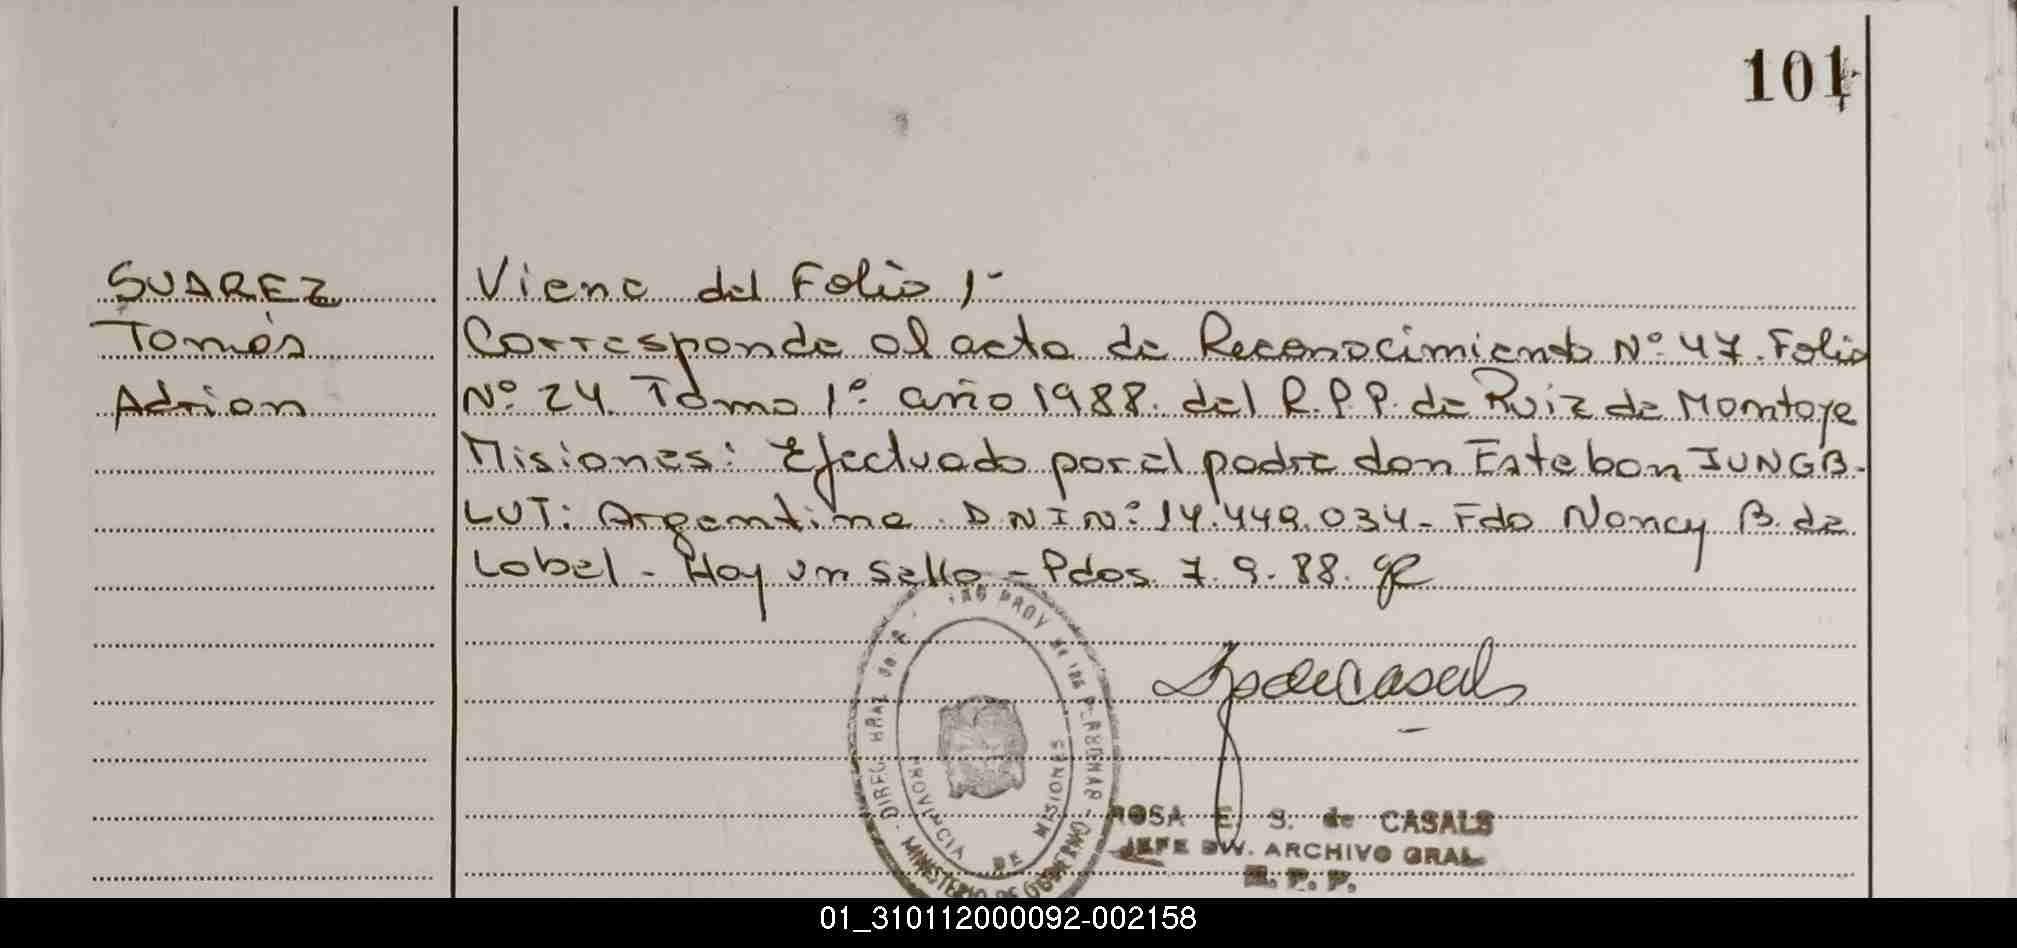 101
SUAREZ
Tomás
Adrian
Viene del Folio 1-
Corresponde al acta de Reconocimiento Nº 47. Folio
Nº 24. Tomo 1º. año 1988. del R.P.P. de Ruiz de Montoya
Misiones: Efectuado por el padre don Esteban JUNGB-
LUT: Argentino. DNI Nº 14.449.034- Fdo Nancy B. de
Lobel - Hay un sello - Pdos. 7. 9. 88.
PROV de las PERSONAS
PROVINCIA DE MISIONES
MINISTERIO DE GOBIERNO
ROSA E. S. de CASALS
JEFE DIV. ARCHIVO GRAL
R. P. P.
01_310112000092-002158